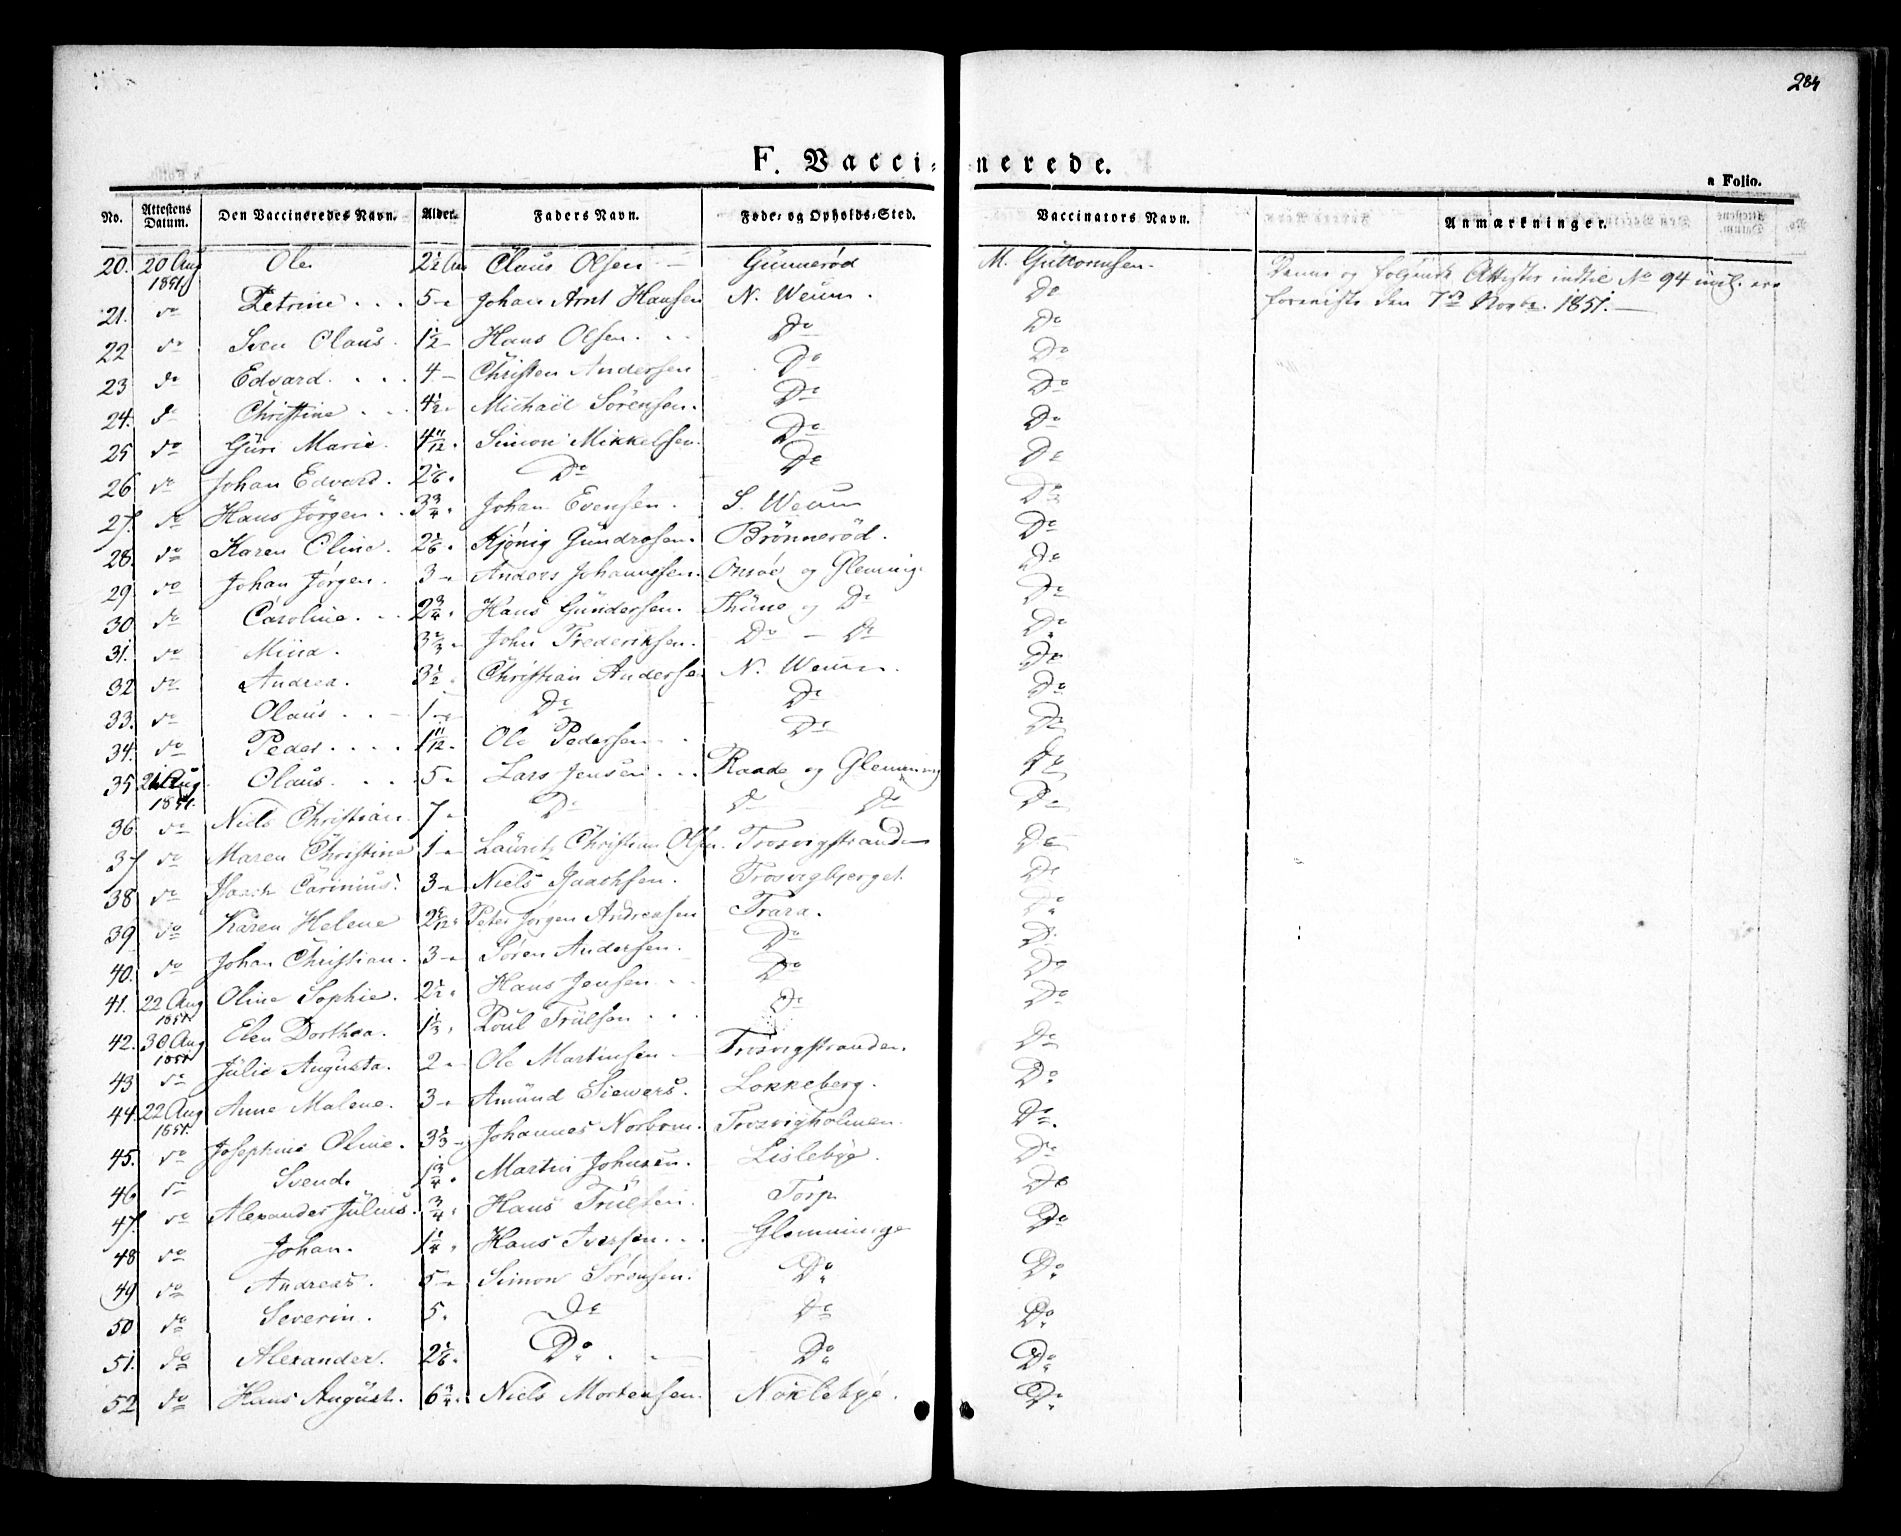 284
F. Vaccinerede.
a Folio.
No. Attestens Datum. Den Vaccineredes Navn. Alder. Faders Navn. Føde- og Opholds-Sted. Vaccinators Navn. Anmærkninger.
20. 20 Aug 1851 Ole 2½ Aar Claus Olsen Gunnerød M. Guttormsen. Denne og følgende Attester indtil No 94 incl. ere
21. do Petrine 5 Johan Arnt Hansen N. Weum. Do foreviste den 7de Novbr. 1851.
22 do Sven Olaus. 1½ Hans Olsen. Do Do
23 do Edvard. 4 Christen Andersen Do Do
24. do Christine 4½ Michail Sørensen. Do Do
25 do Guri Marie 4 11/12 Simon Mikkelsen. Do Do
26 do Johan Edvard. 2 1/6 Do Do Do
27. do Hans Jørgen 3¾ Johan Evensen. S. Weum Do
28. do Karen Oline. 2 1/6 Kjönig Gundrosen. Brønnerød. Do
29. do Johan Jørgen. 3 Anders Johannesen. Onsøe og Glemminge Do
30 do Caroline. 2¾ Hans Gundersen. Thune og Do Do
31. do Mina. 3 2/3 John Frederiksen. Do Do Do
32 do Andrea. 3½ Christian Andersen N. Weum. Do
33. do Olaus 1 Do Do Do
34. do Peder 1 11/12 Ole Pedersen Do Do
35 21 Aug 1851. Olaus. 5 Lars Jensen Raade og Glemming Do
36 do Niels Christian. 7 Do Do Do Do
37 do Maren Christine 1 Lauritz Christian Olsen. Trosvigstranden Do
38 do Isach Carinius. 3 Niels Isachsen. Trosvigbjerget. Do
39 do Karen Helene Peter Jørgen Andreasen Trara. Do
40. do Johan Christian. 3 Søren Andersen. Do Do
41. 22 Aug 1851 Oline Sophie. 2½ Hans Jensen Do Do
42. 30 Aug 1851 Elen Dorthea. 1 1/3 Poul Trulsen Do Do
43 do Julie Augusta. 2 Ole Martinsen Trosvigstranden. Do
44. 22 Aug 1851. Anne Malene. 3 Amünd Siewers. Lokkeberg. Do
45. do Josephine Oline. 3 1/3 Johannes Norbom. Trosvigholmen. Do
46 do Svend. 1¾ Martin Johnsen. Lislebye. Do
47. do Alexander Julius. ¾ Hans Trulsen. Torp Do
48 do Johan. 1¼ Hans Iversen Glemminge Do
49 do Andreas. 5 Simon Sørensen. Do Do
50 do Severin. 5 Do Do Do
51. do Alexander. 2 1/6 Do Do Do
52 do Hans August. 6¾ Niels Mortensen. Noklebye. Do